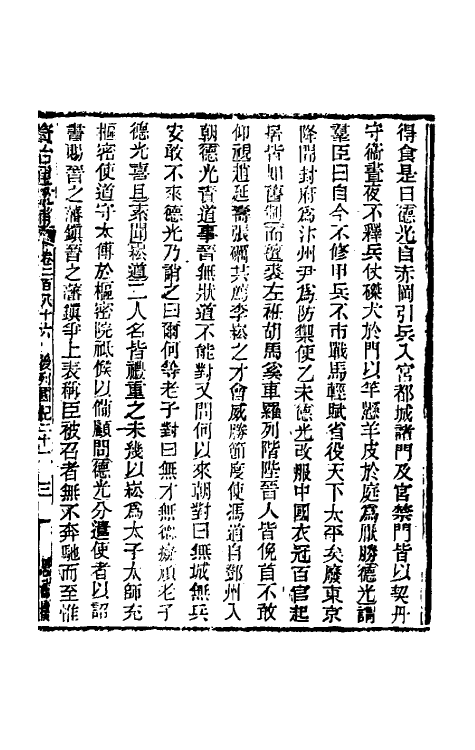 得食是日德光自赤岡引兵入宮都城諸門及宮禁門皆以契丹
守衞晝夜不釋兵仗磔犬於門以竿懸羊皮於庭為厭勝德光謂
羣臣曰自今不修甲兵不市戰馬輕賦省役天下太平矣廢東京
降開封府為汴州尹為防禦使乙未德光改服中國衣冠百官起
居皆如舊制而氊裘左袵胡馬奚車羅列階陛晉人皆俛首不敢
仰視趙延壽張礪共薦李崧之才會威勝節度使馮道自鄧州入
朝德光責道事晉無狀道不能對又問何以來朝對曰無城無兵
安敢不來德光乃誚之曰爾何等老子對曰無才無德癡頑老子
德光喜且素聞崧道二人名皆禮重之未幾以崧為太子太師充
樞密使道守太傅於樞密院祗候以備顧問德光分遣使者以詔
書賜晉之藩鎮晉之藩鎮爭上表稱臣被召者無不奔馳而至惟
卷二百八十六 後列國紀二十一 三